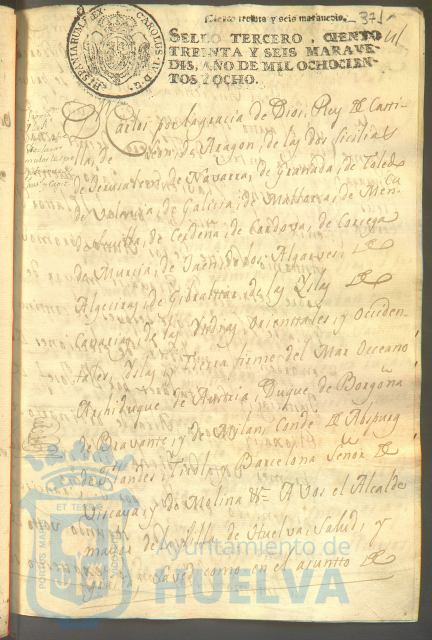 Ciento treinta y seis maravedis.
371
SELLO TERCERO, CIENTO
TREINTA Y SEIS MARAVE-
DIS, AÑO DE MIL OCHOCIEN-
TOS Y OCHO.
HISPANIARUM REX CAROLUS IV D.G.
D.n Carlos por la gracia de Dios Rey de Casti-
lla, de Leon, de Aragon, de las dos Sicilias
de Jerusalen, de Navarra, de Granada, de Toledo
de Valencia, de Galicia, de Mallorca, de Men.ca
de Sevilla, de Cerdeña, de Cordova, de Corcega
de Murcia, de Jaen, de los Algarves, de
Algeciras, de Gibraltar, de las Yslas de
Canarias, de las Yndias Orientales, y Occiden-
tales, Yslas, y Tierra firme del Mar Occeano
Archiduque de Austria, Duque de Borgoña
de Bravante, y de Milan, Conde de Abspurg
de Flandes, Tirol, y Barcelona Señor de
Vizcaya, y de Molina &a. A vos el Alcalde
mayor de la villa de Huelva, Salud, y
gracia, Saved, como en el asuntto de
PORTUS MARIS ET TERRAE CUSTODIA
Ayuntamiento de
HUELVA